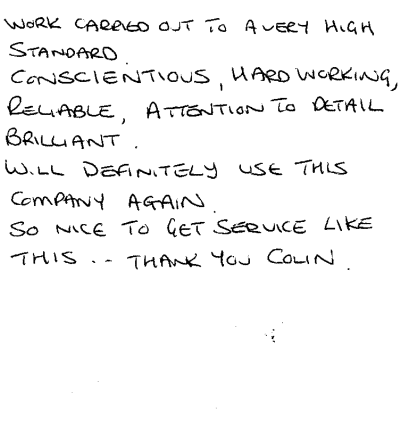 WORK CARRIED OUT TO A VERY HIGH
STANDARD.
CONSCIENTIOUS, HARD WORKING,
RELIABLE, ATTENTION TO DETAIL
BRILLIANT.
WILL DEFINITELY USE THIS
COMPANY AGAIN.
SO NICE TO GET SERVICE LIKE
THIS .. THANK YOU COLIN.